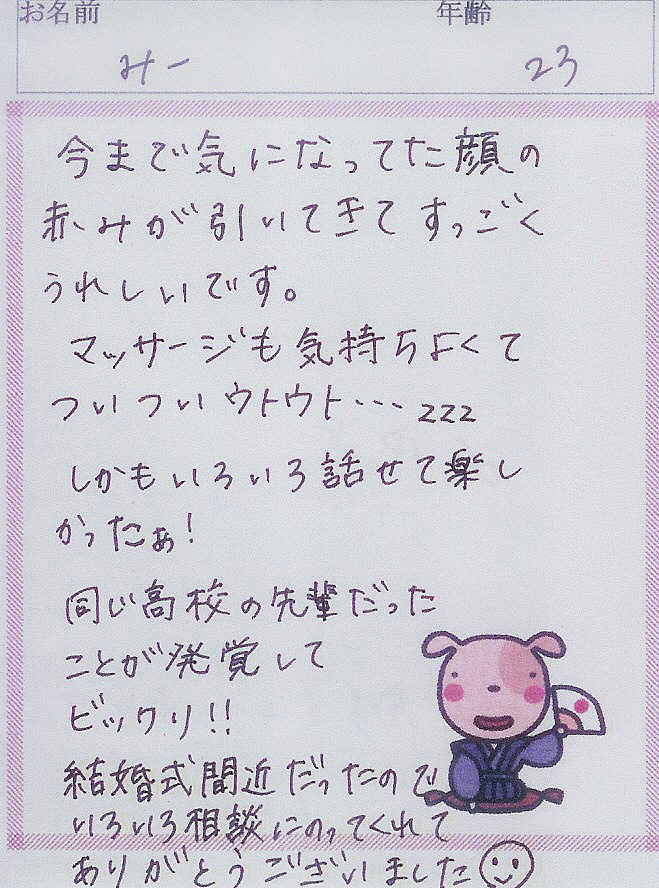 お名前 年齢
みー 23
今まで気になってた顔の
赤みが引いてきてすっごく
うれしいです。
マッサージも気持ちよくて
ついついウトウト・・・zzz
しかもいろいろ話せて楽し
かったぁ!
同じ高校の先輩だった
ことが発覚して
ビックリ!!
結婚式間近だったので
いろいろ相談にのってくれて
ありがとうございました